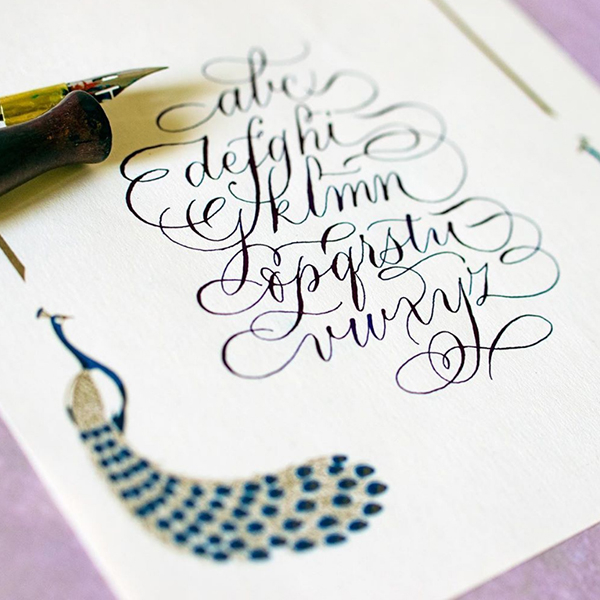 abc
defghi
jklmn
opqrstu
vwxyz